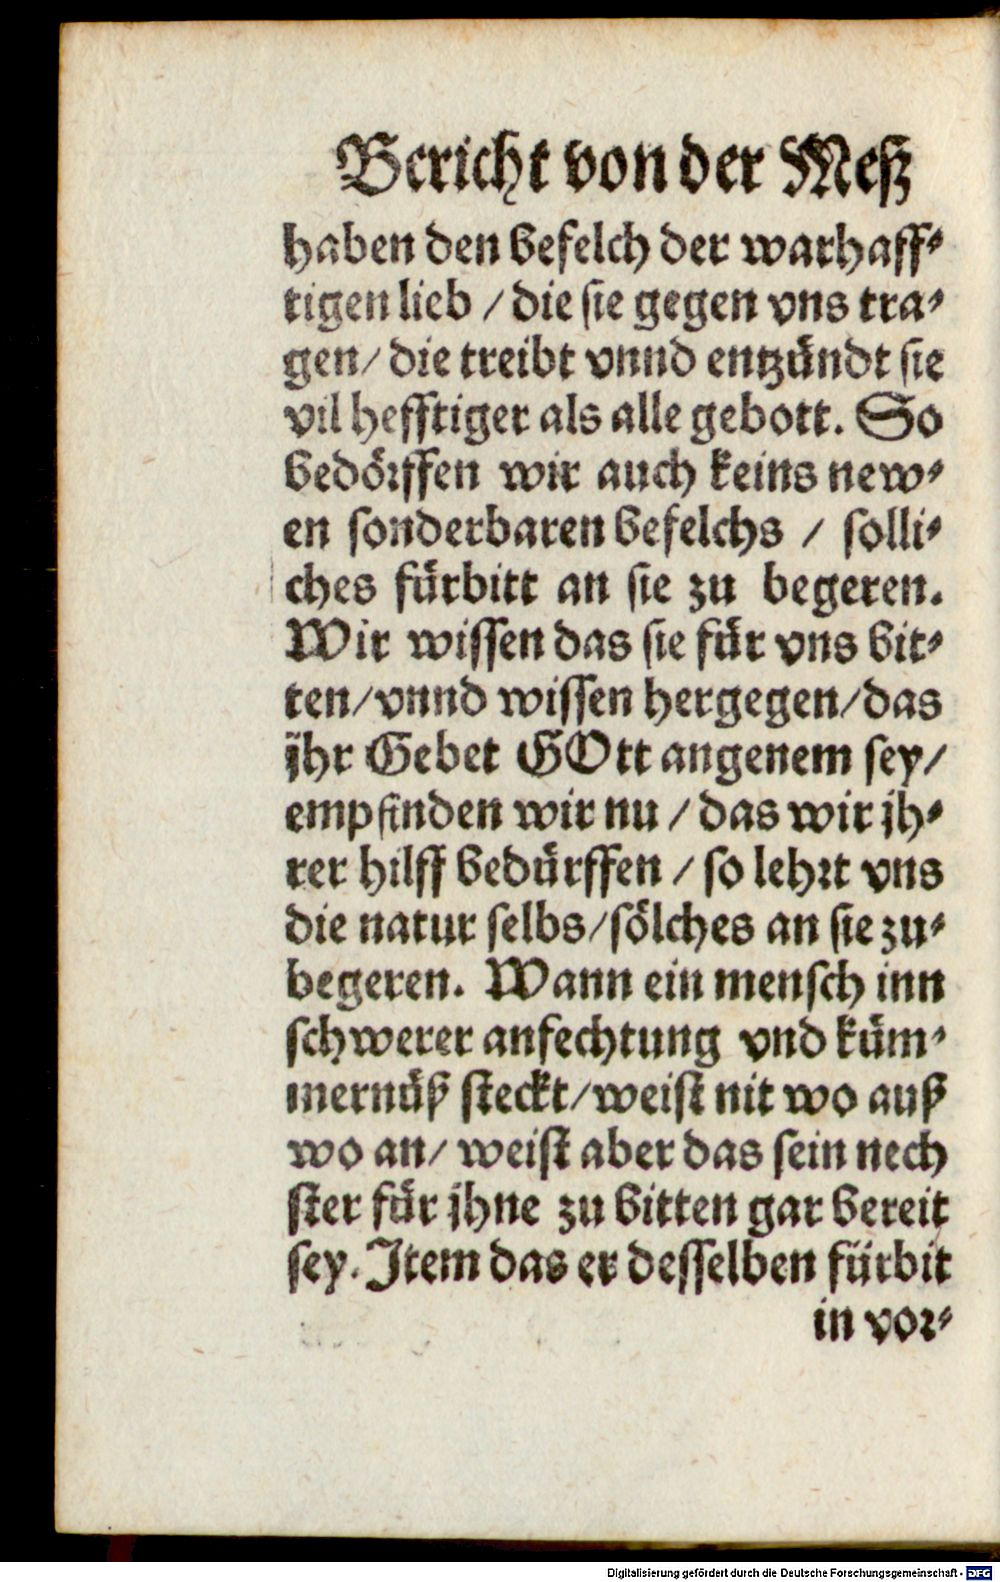 Bericht von der Meß
haben den befelch der warhaff⸗
tigen lieb / die sie gegen vns tra⸗
gen / die treibt vnnd entzündt sie
vil hefftiger als alle gebott. So
bedörffen wir auch keins new⸗
en sonderbaren befelchs / solli⸗
ches fürbitt an sie zu begeren.
Wir wissen das sie für vns bit⸗
ten / vnnd wissen hergegen / das
jhr Gebet GOtt angenem sey /
empfinden wir nu / das wir jh⸗
rer hilff bedürffen / so lehrt vns
die natur selbs / sölches an sie zu⸗
begeren. Wann ein mensch inn
schwerer anfechtung vnd küm⸗
mernüß steckt / weist nit wo auß
wo an / weist aber das sein nech
ster für jhne zu bitten gar bereit
sey. Item das er desselben fürbit
in vor⸗
Digitalisierung gefördert durch die Deutsche Forschungsgemeinschaft - DFG